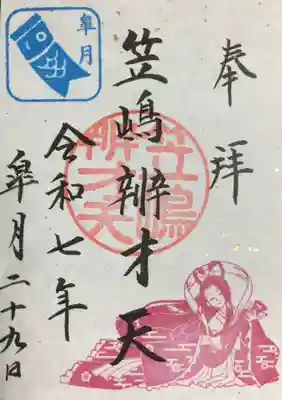 奉拝
笠嶋辨才天
笠嶋辨才天
令和七年
皐月二十九日
皐月